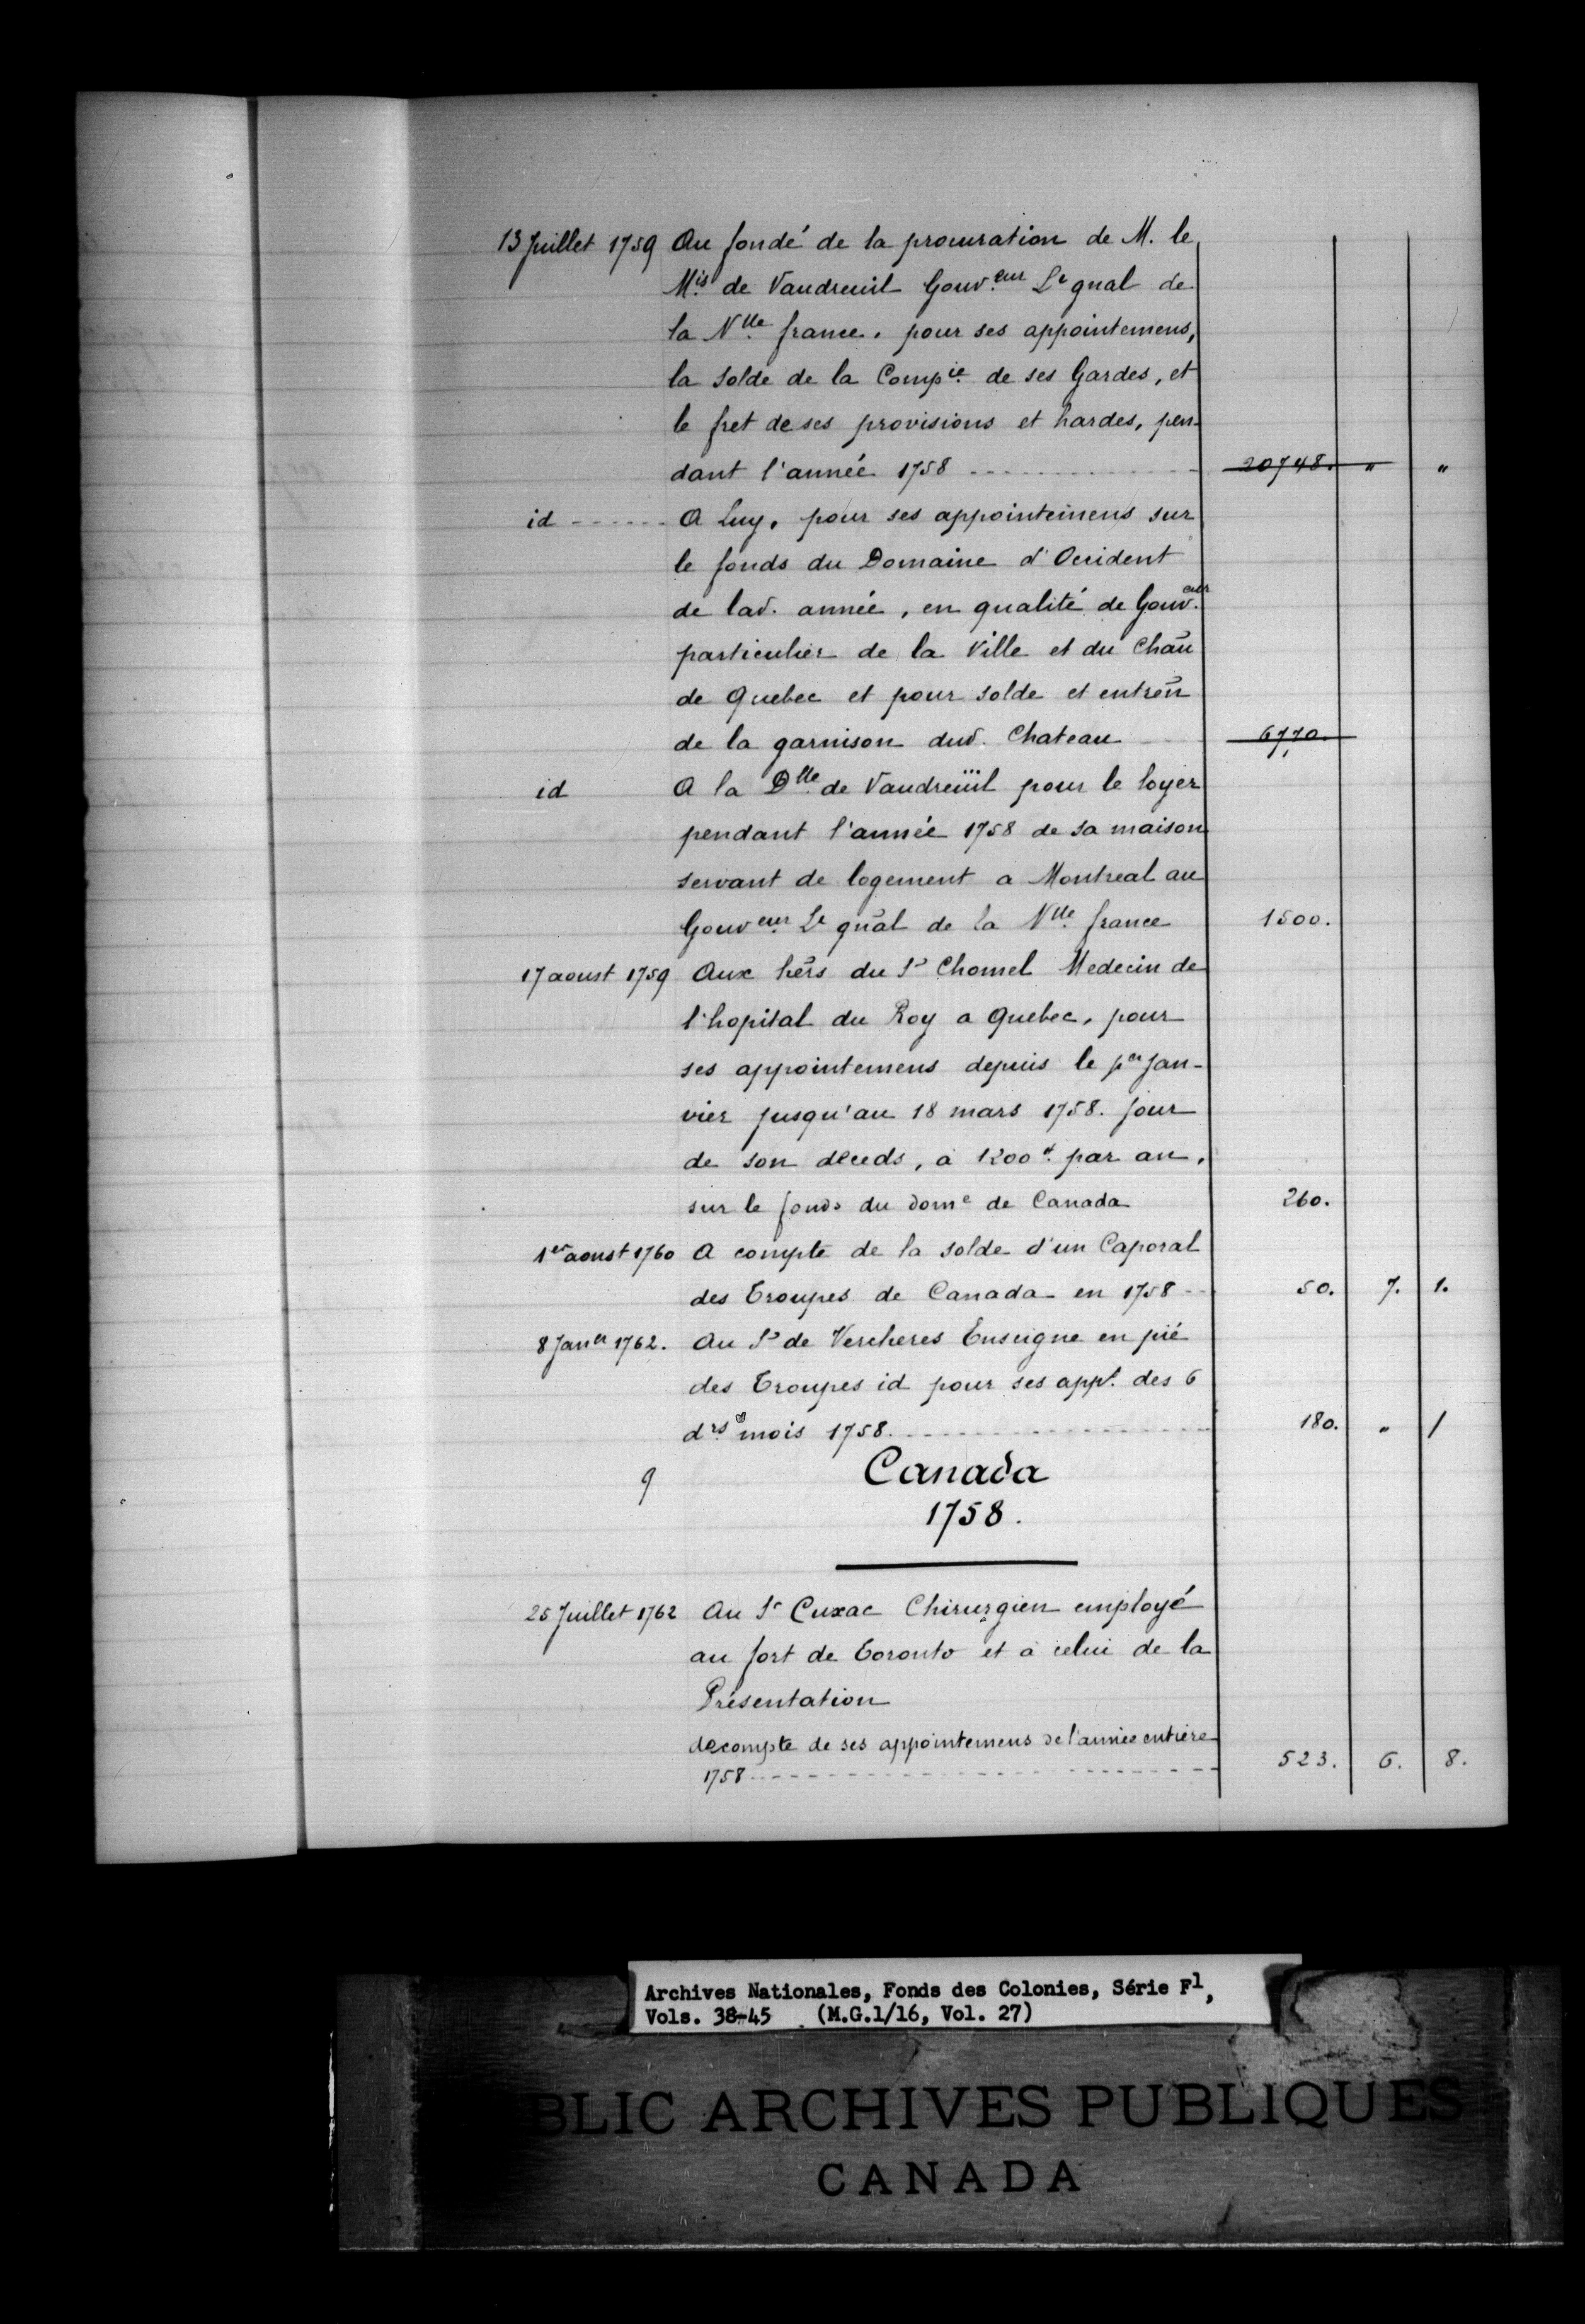 13 Juillet 1759 Au fondé de la procuration de M. le
Mis de Vaudreuil Gouv.eur Lt gnal de
la Nlle france. pour ses appointemens,
la solde de la Compie de ses Gardes, et
le fret de ses provisions et hardes, pen-
dant l'année 1758 20748. " "
id A Luy, pour ses appointemens sur
le fonds du Domaine d'Occident
de lad. année, en qualité de Gouv.eur
particulier de la Ville et du Chāu
de Quebec et pour solde et entrēn
de la garnison dud. Chateau 6770.
id A la Dlle de Vaudreüil pour le loyer
pendant l'année 1758 de sa maison
servant de logement a Montreal au
Gouveur Lt gn̄al de la Nlle france 1500.
17 aoust 1759 Aux hērs du Sr Chomel Medecin de
l'hopital du Roy a Quebec, pour
ses appointemens depuis le per Jan-
vier jusqu'au 18 mars 1758. jour
de son deceds, a 1200# par an,
sur le fonds du dome de Canada 260.
1er aoust 1760 A compte de la solde d'un Caporal
des Troupes de Canada en 1758 50. 7. 1.
8 Janer 1762. Au Sr de Vercheres Enseigne en pié
des Troupes id pour ses appt. des 6
drs mois 1758. 180. " /
9 Canada
1758.
25 Juillet 1762 Au Sr Cuxac Chirurgien employé
au fort de Toronto et à celui de la
Présentation
decompte de ses appointemens de l'année entiere
1758 523. 6. 8.
Archives Nationales, Fonds des Colonies, Série F1,
Vols. 38-45 (M.G.1/16, Vol. 27)
BLIC ARCHIVES PUBLIQUES
CANADA